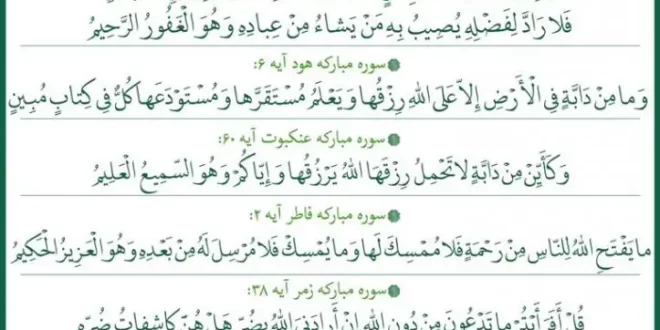 فَلا رَادَّ لِفَضْلِهِ يُصِيبُ بِهِ مَنْ يَشَاءُ مِنْ عِبادِهِ وَهُوَ الْغَفُورُ الرَّحِيمُ
سوره مبارکه هود آیه ۶:
وَما مِنْ دَابَّةٍ فِي الْأَرْضِ إِلاَّ عَلَى اللهِ رِزْقُها وَيَعْلَمُ مُسْتَقَرَّها وَمُسْتَوْدَعَها كُلٌّ فِي كِتابٍ مُبِينٍ
سوره مبارکه عنکبوت آیه ۶۰:
وَكَأَيِّنْ مِنْ دَابَّةٍ لا تَحْمِلُ رِزْقَهَا اللهُ يَرْزُقُها وَإِيَّاكُمْ وَهُوَ السَّمِيعُ الْعَلِيمُ
سوره مبارکه فاطر آیه ۲:
ما يَفْتَحِ اللهُ لِلنَّاسِ مِنْ رَحْمَةٍ فَلا مُمْسِكَ لَها وَما يُمْسِكْ فَلا مُرْسِلَ لَهُ مِنْ بَعْدِهِ وَهُوَ الْعَزِيزُ الْحَكِيمُ
سوره مبارکه زمر آیه ۳۸:
قُلْ أَفَرَأَيْتُمْ ما تَدْعُونَ مِنْ دُونِ اللهِ إِنْ أَرادَنِيَ اللهُ بِضُرٍّ هَلْ هُنَّ كاشِفاتُ ضُرِّهِ